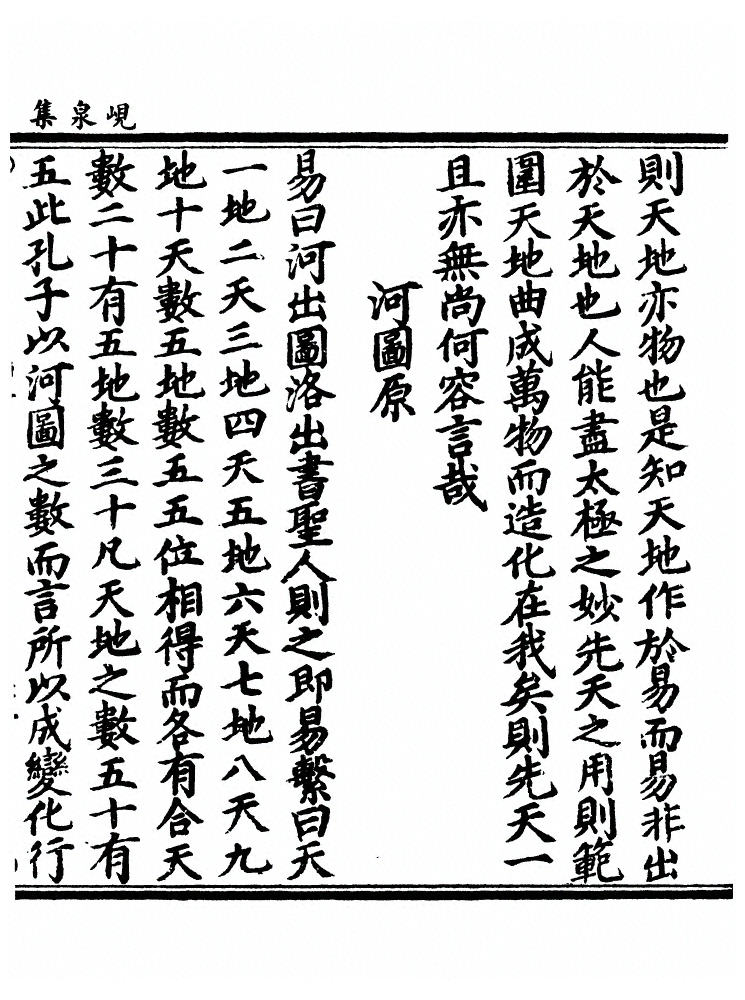 峴泉集
則天地亦物也是知天地作於易而易非出
於天地也人能盡太極之妙先天之用則範
圍天地曲成萬物而造化在我矣則先天一
且亦無尚何容言哉
河圖原
易曰河出圖洛出書聖人則之即易繫曰天
一地二天三地四天五地六天七地八天九
地十天數五地數五五位相得而各有合天
數二十有五地數三十凡天地之數五十有
五此孔子以河圖之數而言所以成變化行